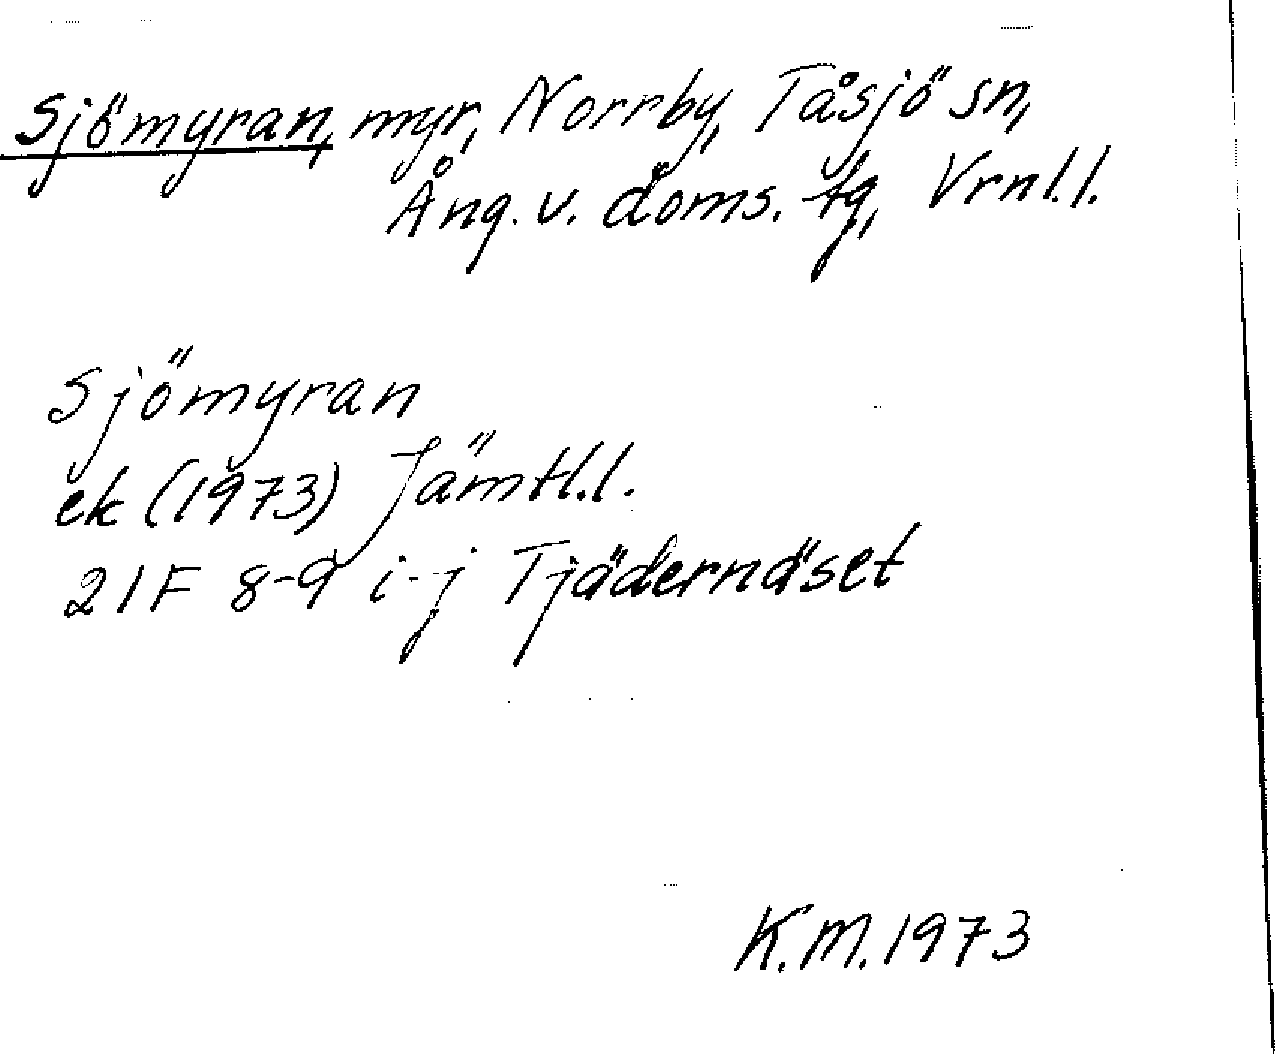 Sjömyran, myr, Norrby, Tåsjö sn,
Ång. v. doms. tg, Vrnl.l.
Sjömyran
ek (1973) Jämtl.l.
21F 8-9 i-j Tjädernäset
K.M. 1973